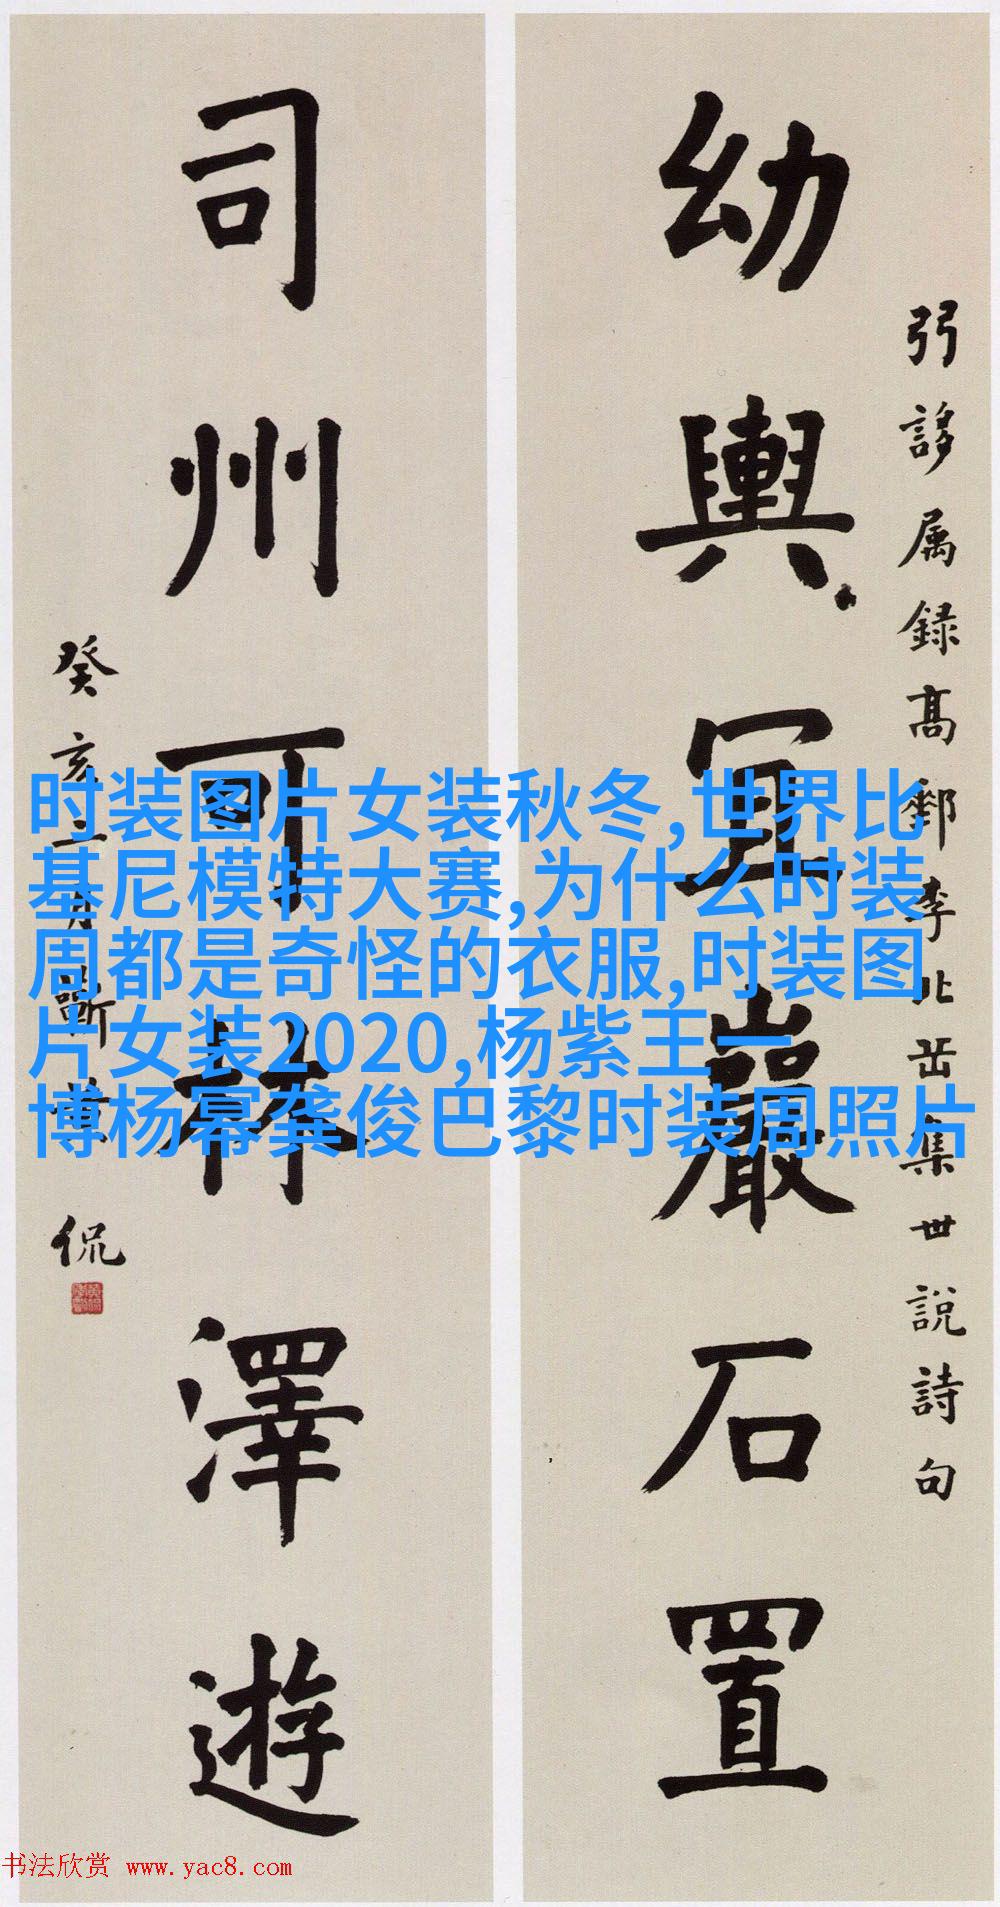 弜謻属録高郵李北茁集世說詩句
幼輿宜巖石置
司州可林澤遊
癸亥二月蘄黄侃
时装图片女装秋冬,世界比
基尼模特大赛,为什么时装
周都是奇怪的衣服,时装图
片女装2020,杨紫王一
博杨幂龚俊巴黎时装周照片
书法欣赏 www.yac8.com